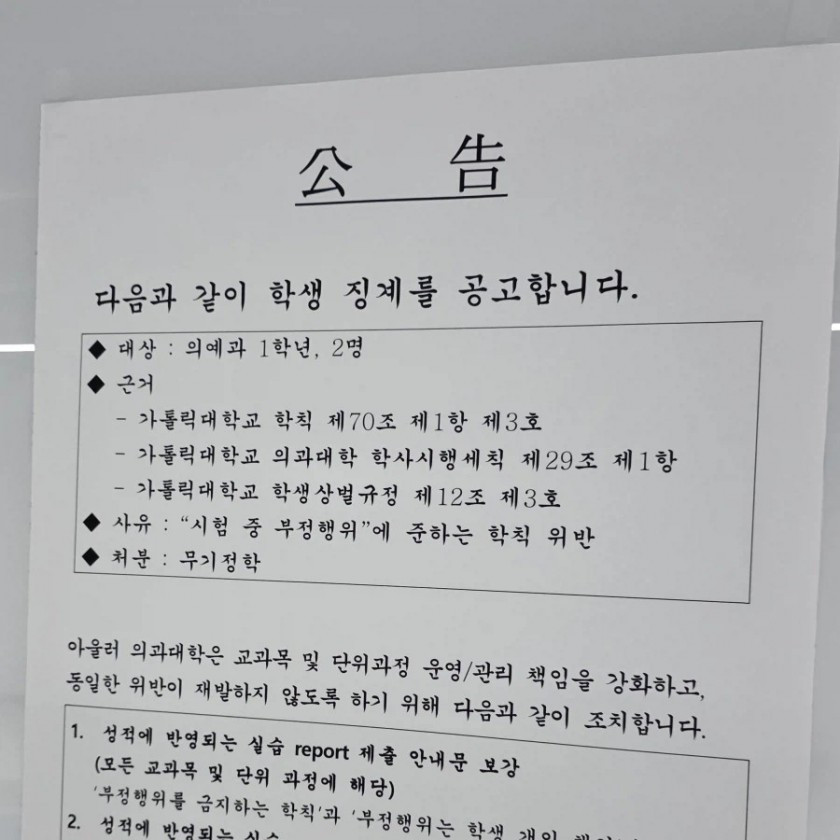 公 告
다음과 같이 학생 징계를 공고합니다.
◆ 대상 : 의예과 1학년, 2명
◆ 근거
- 가톨릭대학교 학칙 제70조 제1항 제3호
- 가톨릭대학교 의과대학 학사시행세칙 제29조 제1항
- 가톨릭대학교 학생상벌규정 제12조 제3호
◆ 사유 : “시험 중 부정행위”에 준하는 학칙 위반
◆ 처분 : 무기정학
아울러 의과대학은 교과목 및 단위과정 운영/관리 책임을 강화하고,
동일한 위반이 재발하지 않도록 하기 위해 다음과 같이 조치합니다.
1. 성적에 반영되는 실습 report 제출 안내문 보강
(모든 교과목 및 단위 과정에 해당)
‘부정행위를 금지하는 학칙’과 ‘부정행위는 학생 개인
2. 성적에 반영되는 실습